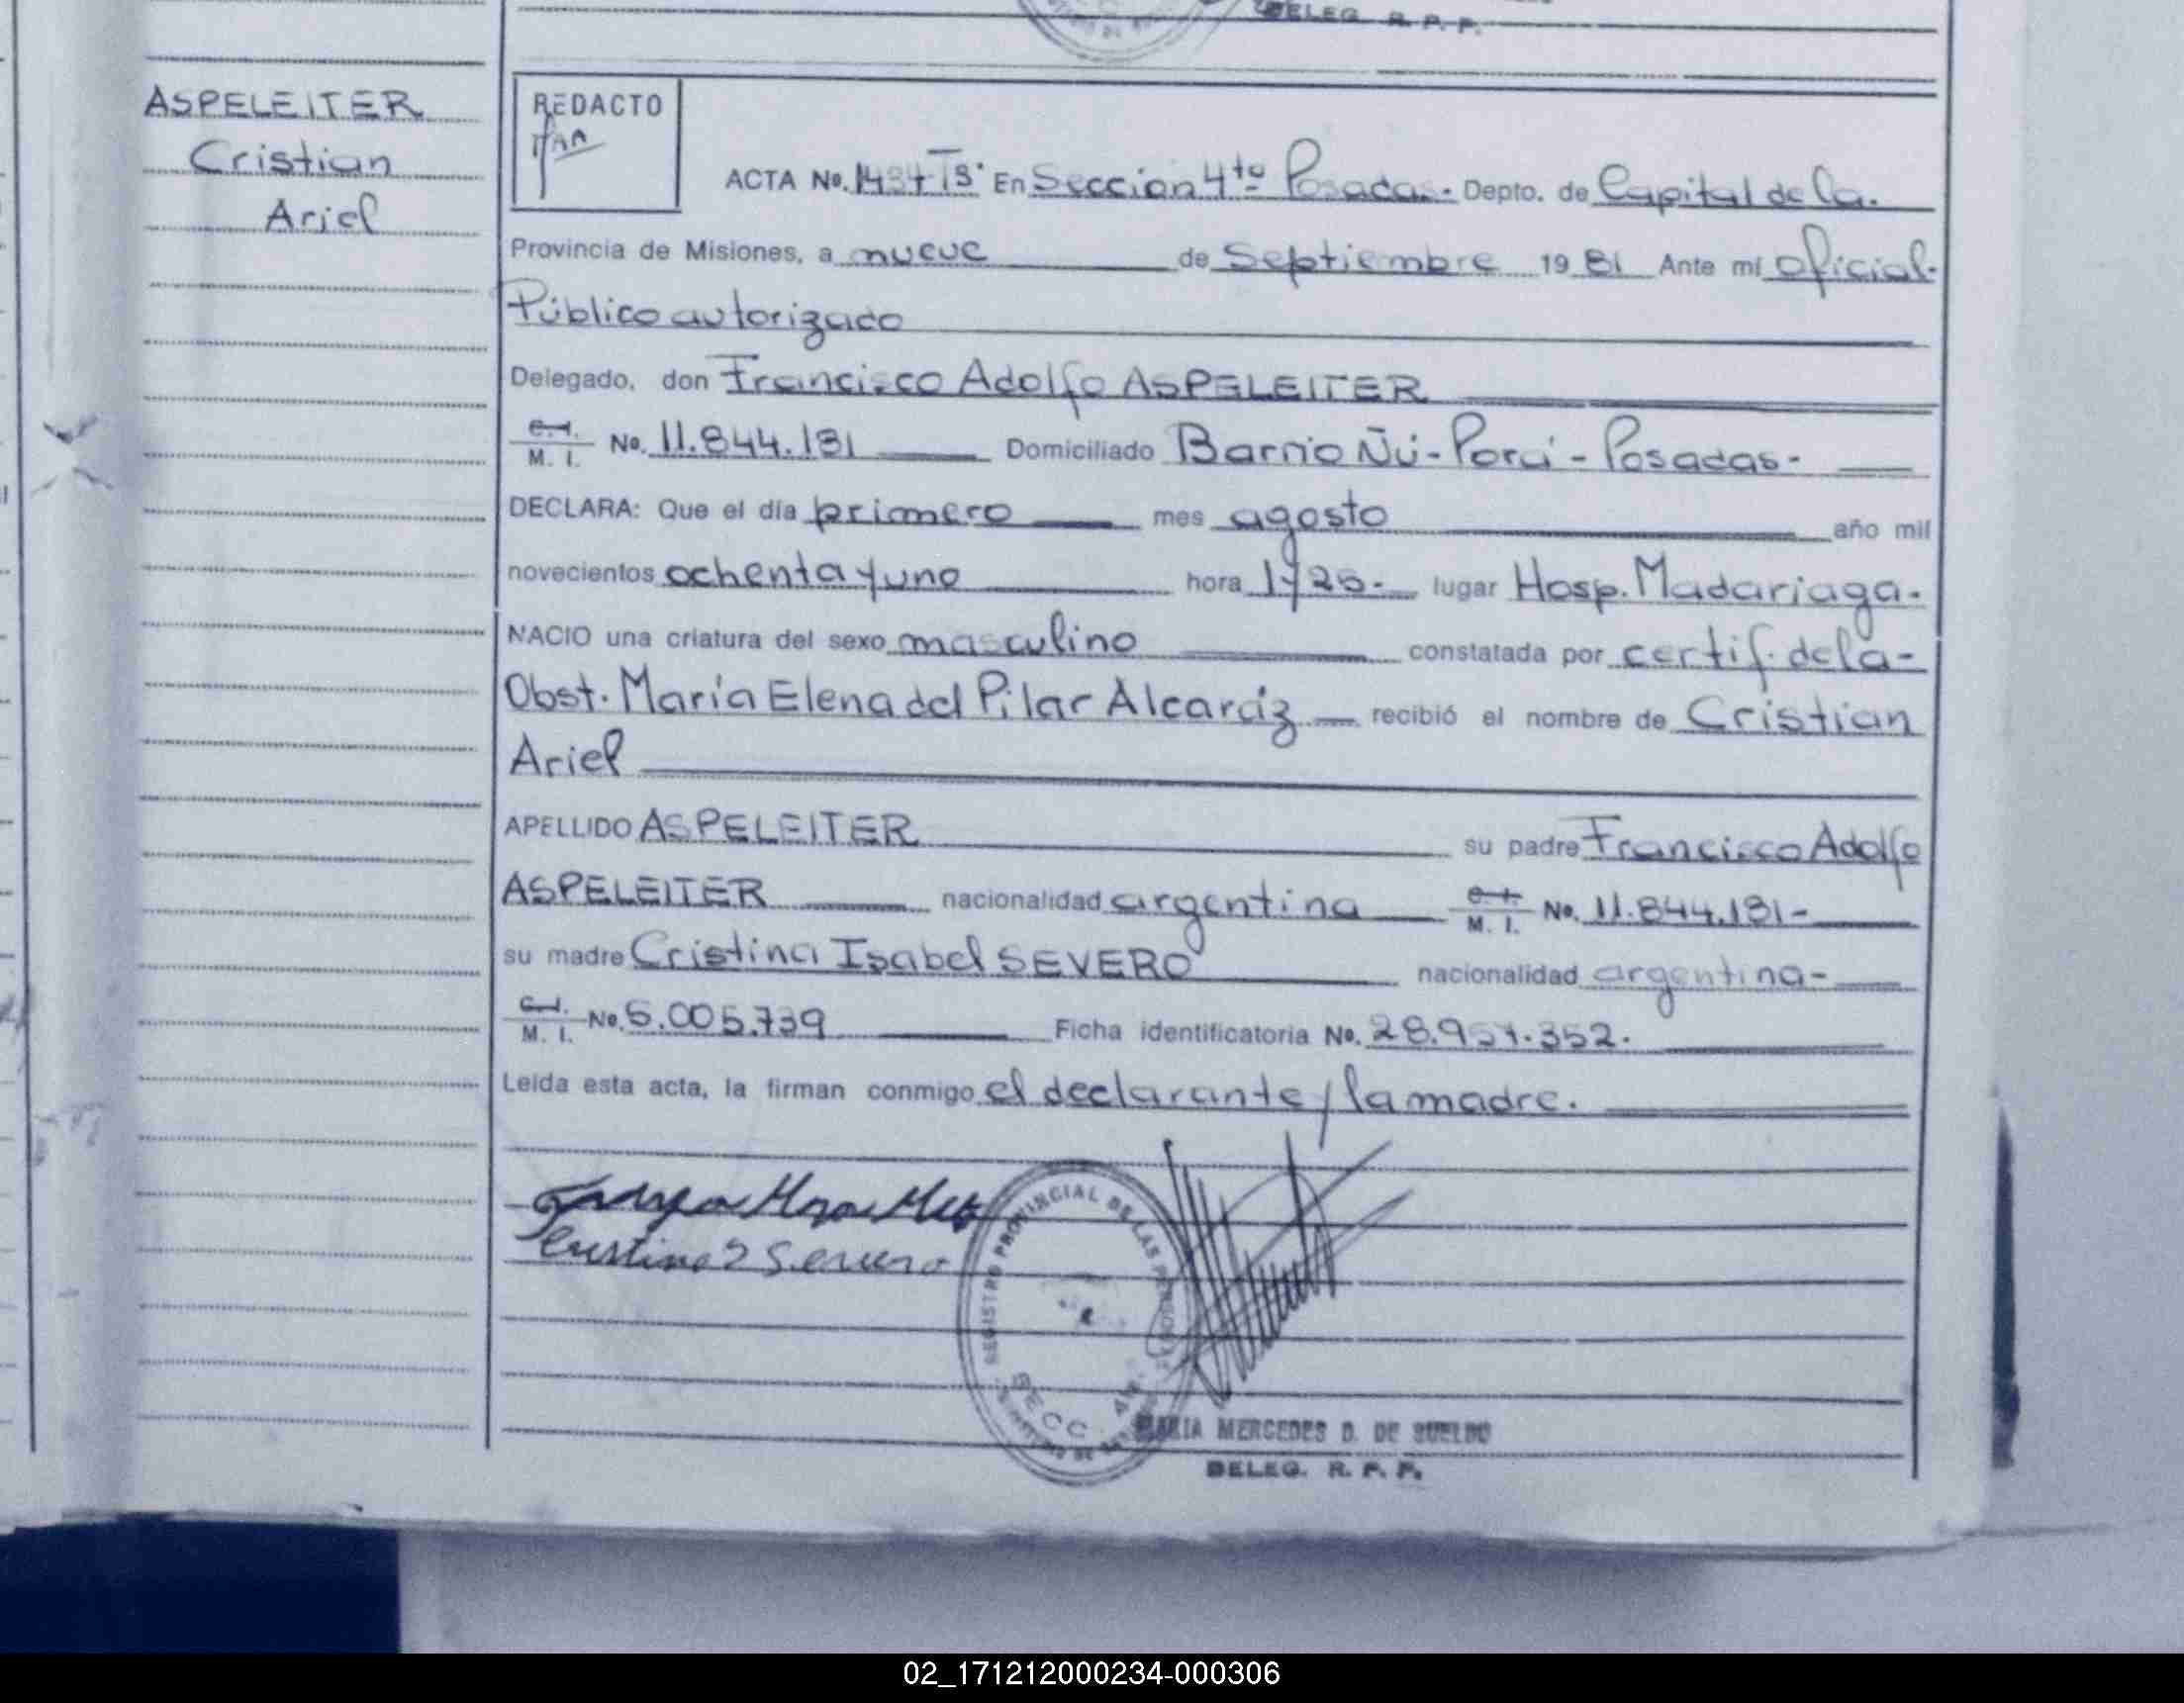 DELEG. R. P. P.
ASPELEITER
Cristian
Ariel
REDACTO
ACTA No. 1434 Tº 3º En Sección 4ta Posadas.- Depto. de Capital de la.
Provincia de Misiones, a nueve de Septiembre 19 81 Ante mí Oficial-
Público autorizado
Delegado, don Francisco Adolfo ASPELEITER
C. I. M. I. No. 11.844.131 Domiciliado Barrio Ñú-Porá - Posadas-
DECLARA: Que el día primero mes agosto año mil
novecientos ochenta y uno hora lugar Hosp. Madariaga.
NACIO una criatura del sexo masculino constatada por certif. de la-
Obst. María Elena del Pilar Alcaráz recibió el nombre de Cristian
Ariel
APELLIDO ASPELEITER su padre Francisco Adolfo
ASPELEITER nacionalidad argentina C. I. M. I. No. 11.844.131-
su madre Cristina Isabel SEVERO nacionalidad argentina-
C. I. M. I. No. 6.005.739 Ficha identificatoria No. 28.951.352.
Leida esta acta, la firman conmigo el declarante y la madre.
Cristina I Severo
REGISTRO PROVINCIAL DE LAS PERSONAS
SECC. 4ta
MARIA MERCEDES D. DE SUELDO
DELEG. R. P. P.
02_171212000234-000306